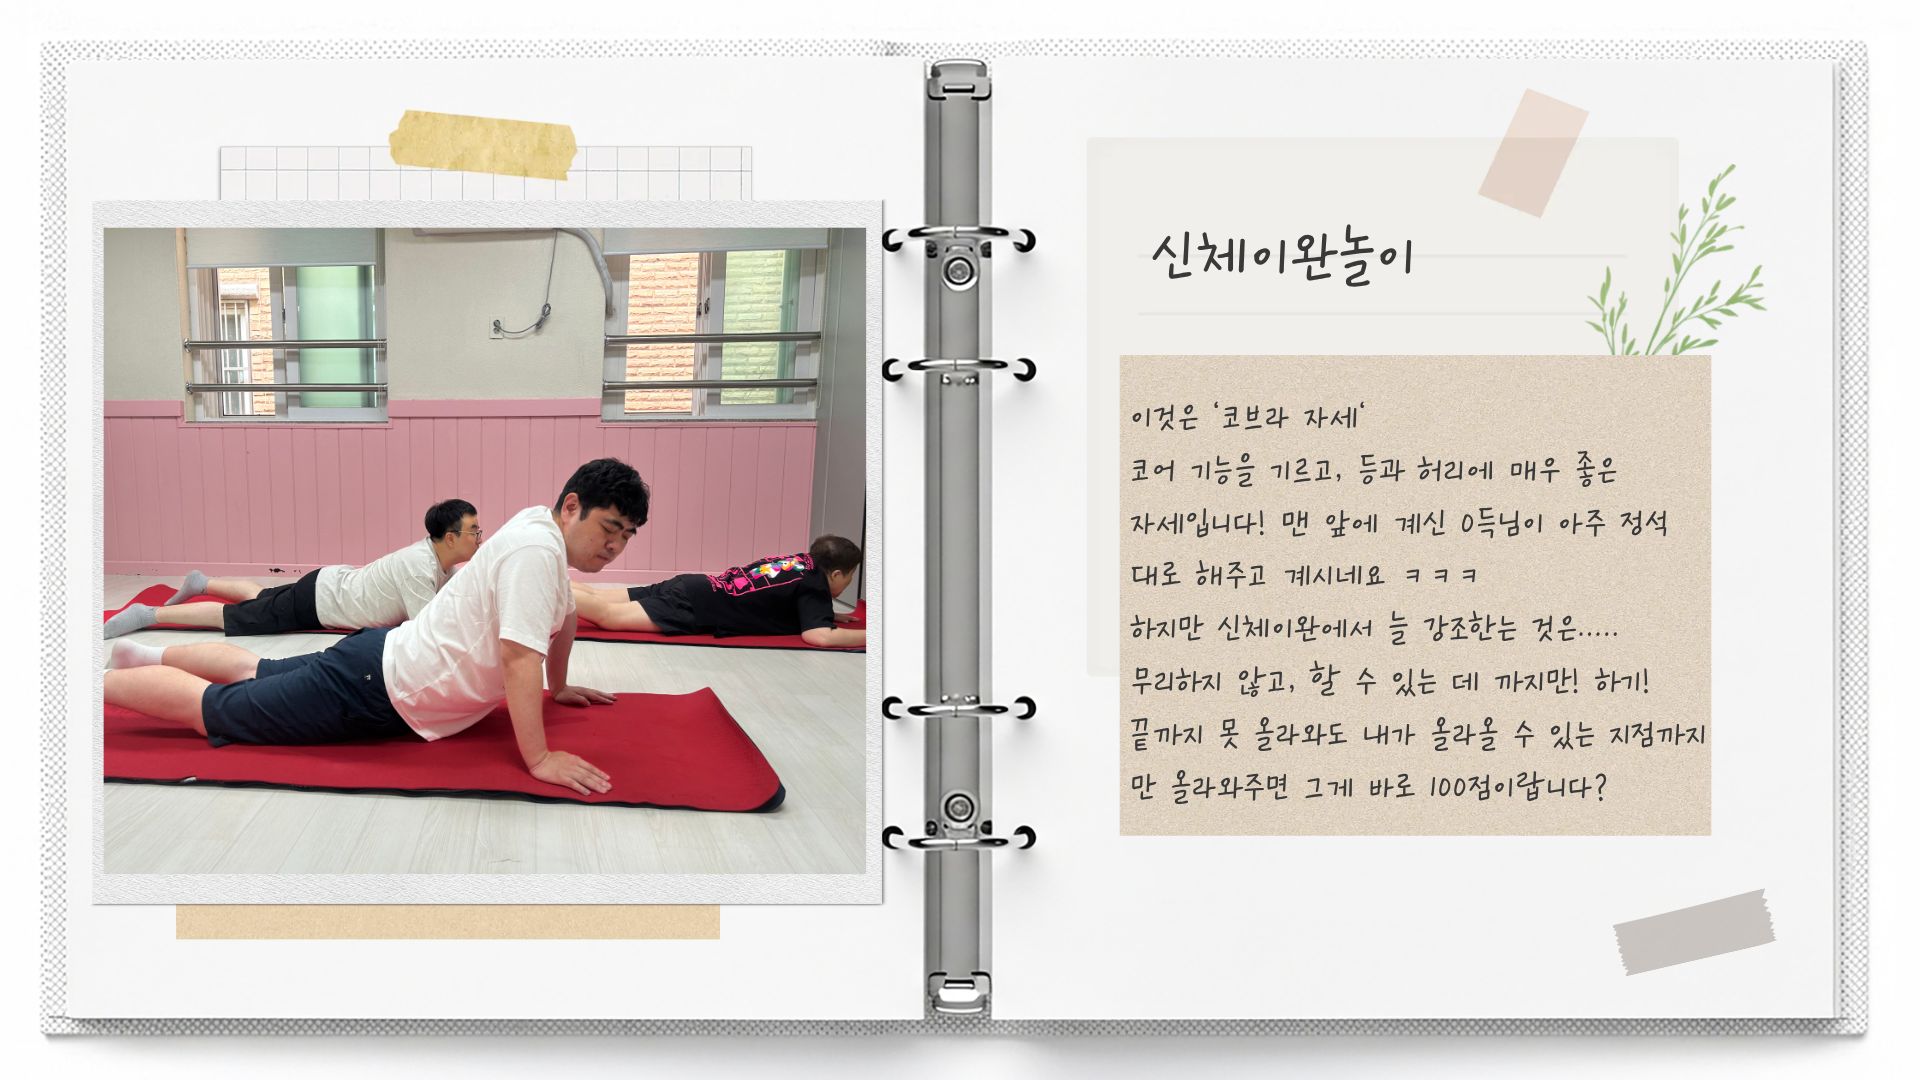 신체이완놀이
이것은 ‘코브라 자세‘
코어 기능을 기르고, 등과 허리에 매우 좋은
자세입니다! 맨 앞에 계신 0득님이 아주 정석
대로 해주고 계시네요 ㅋㅋㅋ
하지만 신체이완에서 늘 강조한는 것은.....
무리하지 않고, 할 수 있는 데 까지만! 하기!
끝까지 못 올라와도 내가 올라올 수 있는 지점까지
만 올라와주면 그게 바로 100점이랍니다?